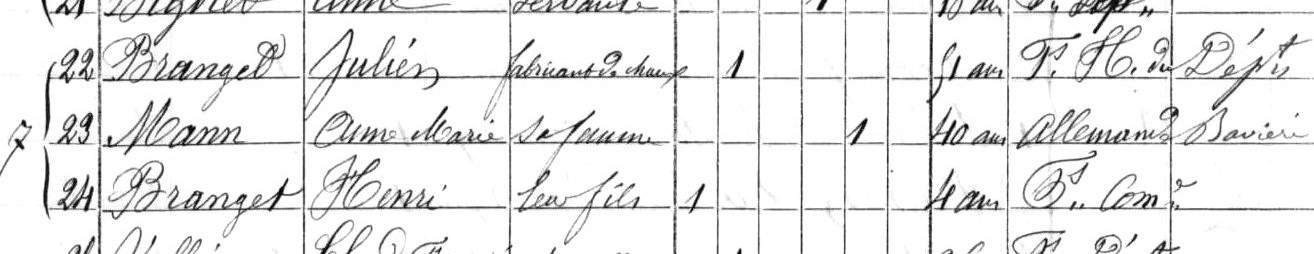 21 servante 1 ans
22 Branget Julien fabricant de chaux 1 51 ans F.s H. du Dépt
7 23 Mann Anne Marie Sa femme 1 40 ans Allemande Bavière
24 Branget Henri leur fils 1 4 ans F.s Com.e